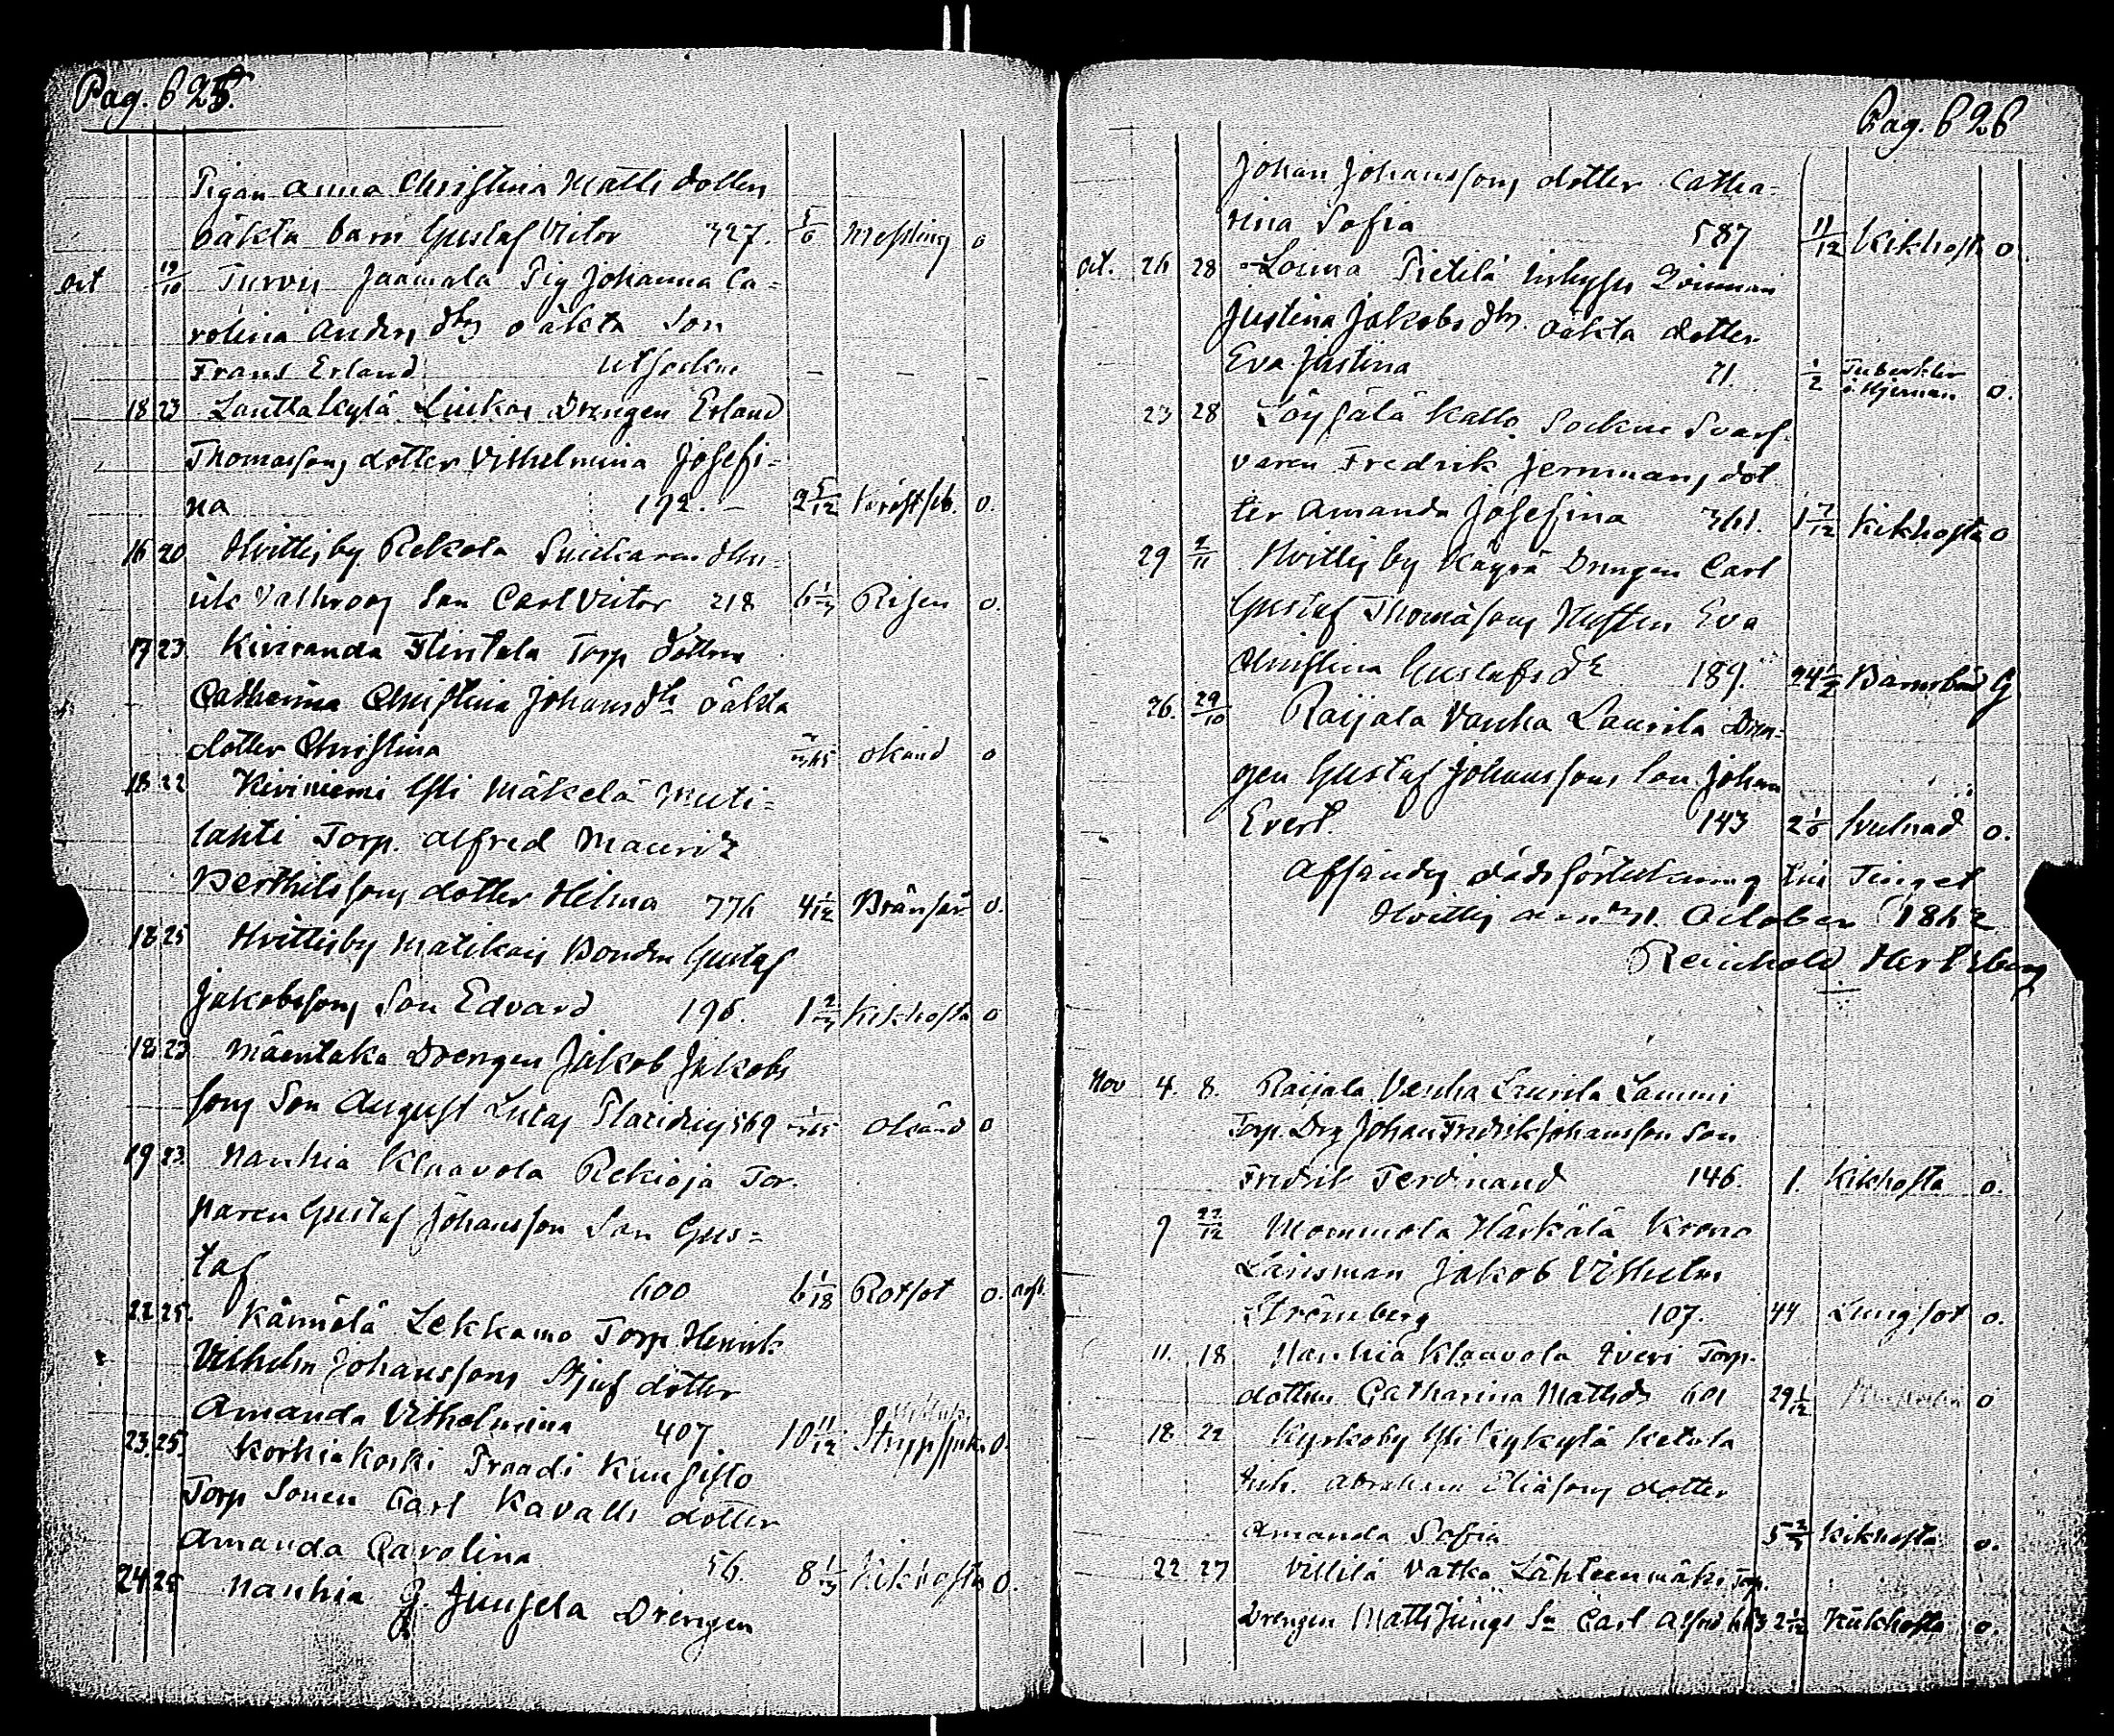 Pag. 625.
Pigan Anna Christina Matts dotters
oäkta barn Gustaf Victor 327. 5/6 Messling o
Oct 19/10 Turvis Jaamala Pig Johanna Ca=
rolina Anders drs oäkta Son
Frans Erland utsockne - - -
18 23 Lauttakylä Liukas Drengen Erland
Thomassons dotter Vilhelmina Josefi=
na 192. - 2 5/12 o.
16 20 Hvittisby Rekola
Son Carl Victor 218 6 1/3 Risen o.
17 23 Kiviranda Flintala Torp dottren
Catharina Christina Johansdr oäkta
dotter Christina okänd o
18 22 Kiviniemi Yli Mäkelä
lahti Torp. Alfred Mauritz
Berthilssons dotter Hilma 776 4 1/12 Brånsår o.
18 25 Hvittisby Matikais Bonden Gustaf
Jakobssons Son Edvard 196. 1 2/3 Kikhosta o
18 23 Mäentaka Drengen Jakob Jakobs
sons Son August Lucas 569 okänd o
19 23 Nanhia Klaavola Rekioja Tor-
paren Gustaf Johansson Son Gus=
taf 600 6 1/18 Rotsot o.
22 25. Kännölä Lekkamo Torp Henrik
Vilhelm Johanssons Stjuf dotter
Amanda Vilhelmina 407 10 11/12 Strypsjuka o.
23. 25. Korkiakoski Fraadi
Torp Sonen Carl Kavalls dotter
Amanda Carolina 56. 8 1/3 Kikhosta o.
24 25 Nanhia Junsela Drengen
Pag. 626
Johan Johanssons dotter Catha=
rina Sofia 587 11/12 Kikhosta o.
Oct. 26 28 Loima Pietilä Inhyses Qvinnan
Justina Jakobs dr. oäkta dotter
Eva Justina 71 1/2 Tuberkler
i Hjernan o.
23 28 Löysälä Kallo Sockne Svarf-
varen Fredrik Jernmans dot
ter Amanda Josefina 361. 1 7/12 Kikhosta o
29 2/11 Hvittis by Käyrä Drengen Carl
Gustaf Thomassons Hustru Eva
Christina Gustafs dr 189. 24 1/2 Barnsbörd G
26. 29/10 Raijala Vanha Laurila Dren-
gen Gustaf Johanssons Son Johan
Evert. 143 2 1/6 svulnad o.
Afsändes dödsförteckning till Tinget
Hvittis October 1862
Reinhold Hertzberg
Nov 4. 8. Raijala Vanha Laurila Lammi
Torp. Drg Johan Fredrik Johansson Son
Fredrik Ferdinand 146. 1. Kikhosta o.
9 22/12 Mommola Härkälä Krono
Länsman Jakob Vilhelm
Strömberg 107. 44 Lungsot o.
11. 18 Nanhia Klaavola Iveri Torp.
dottren Catharina Mattsdr 601 29 1/12 o
18 22 Kyrkoby Yli Kykylä Ketola
Inh. Abraham Eliassons dotter
Amanda Sofia 5 2/3 Kikhosta o.
22 27 Villilä Vatka Lähteenmäki Torp.
Drengen Matts Jungs Sn Carl Alfred 2 1/12 Kikhosta o.